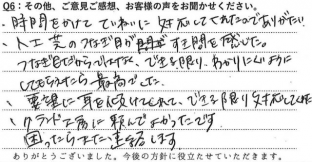 Q6：その他、ご意見ご感想、お客様の声をお聞かせください。
・時間をかけて ていねいに 対応してくれたのでありがたい。
・人工芝のつなぎ目が すき間を感じた。
つなぎ目だからしかたなく、できる限り、わかりにくいように
してもらえたら最高でした。
・要望に耳を傾けてくれて、できる限り対応してくれた
・グランド工房に頼んでよかったです
困ったらまた連絡します
ありがとうございました。今後の方針に役立たせていただきます。